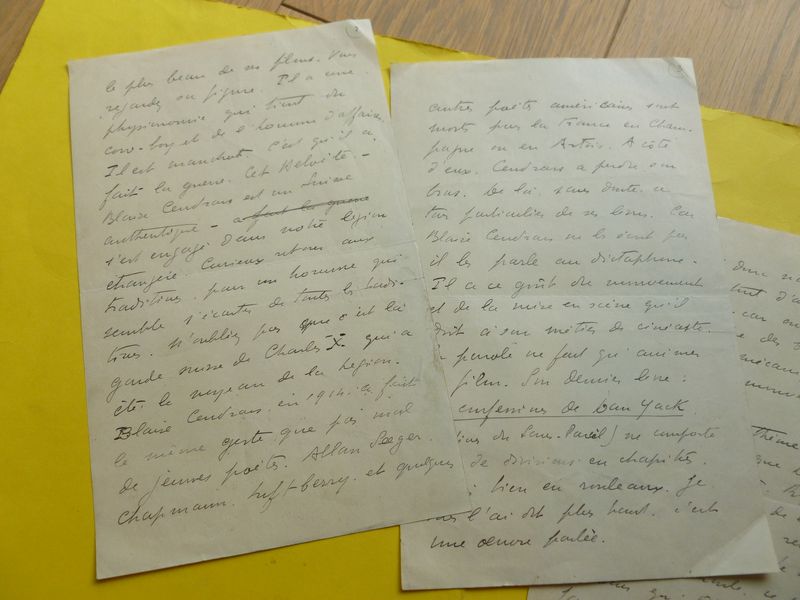 le plus beau de ses films. Vous
regardez sa figure. Il a une
physionomie qui tient du
cow-boy et de l'homme d'affaires
Il est manchot. C'est qu'il a
fait la guerre. Cet Helvète -
Blaise Cendrars est un Suisse
authentique - a fait la guerre
s'est engagé dans notre légion
étrangère. Curieux retour aux
traditions, pour un homme qui
semble s'écarter de toutes les tradi-
tions. N'oubliez pas que c'est la
garde suisse de Charles X. qui a
été le noyau de la Légion.
Blaise Cendrars en 1914 a fait
le même geste que pas mal
de jeunes poètes. Allan Seeger.
Chapmann. et quelques
autres poètes américains sont
morts pour la France en Cham-
pagne ou en Artois. A côté
d'eux. Cendrars a perdu son
bras. De là, sans doute, a
très particulier de ses livres. Car
Blaise Cendrars ne les écrit pas
il les parle au dictaphone.
Il a ce goût du mouvement
et de la mise en scène qu'il
doit à son métier de cinéaste.
parole ne fait qu'animer
film. Son dernier livre :
confessions de Dan Yack
du Sans-Pareil) ne comporte
de divisions en chapitres.
bien en rouleaux. Je
l'ai dit plus haut. c'est
une oeuvre parlée.
donc
d'a
car
des
mouv
Thème
que
de